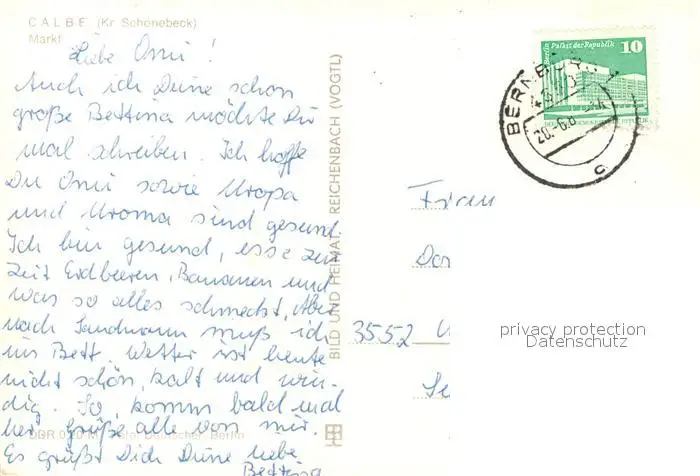 CALBE (Kr Schönebeck)
Markt
Liebe Omi!
Auch ich Deine schon
große Bettina möchte Dir
mal schreiben. Ich hoffe
Du Omi sowie Uropa
und Uroma sind gesund.
Ich bin gesund, esse zur
Zeit Erdbeeren, Bananen und
was so alles schmeckt. Aber
nach Sandmann muß ich
ins Bett. Wetter ist heute
nicht schön, kalt und win-
dig. So, komm bald mal
her grüße alle von mir.
Es grüßt Dich Deine liebe
Bettina
DDR 0,20 M Foto: Deutscher, Berlin
BILD UND HEIMAT REICHENBACH (VOGTL)
Berlin Palast der Republik 10
BERNBURG 1
43
20.-6.8
c
3552
privacy protection
Datenschutz